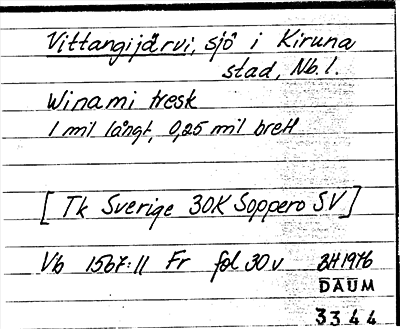 Vittangijärvi, sjö i Kiruna
stad, Nb. l.
Winami tresk
1 mil långt, 0,25 mil brett
[Tk Sverige 30K Soppero SV]
Vb 1567:11 Fr fol 30 v BH 1976
DAUM
3344